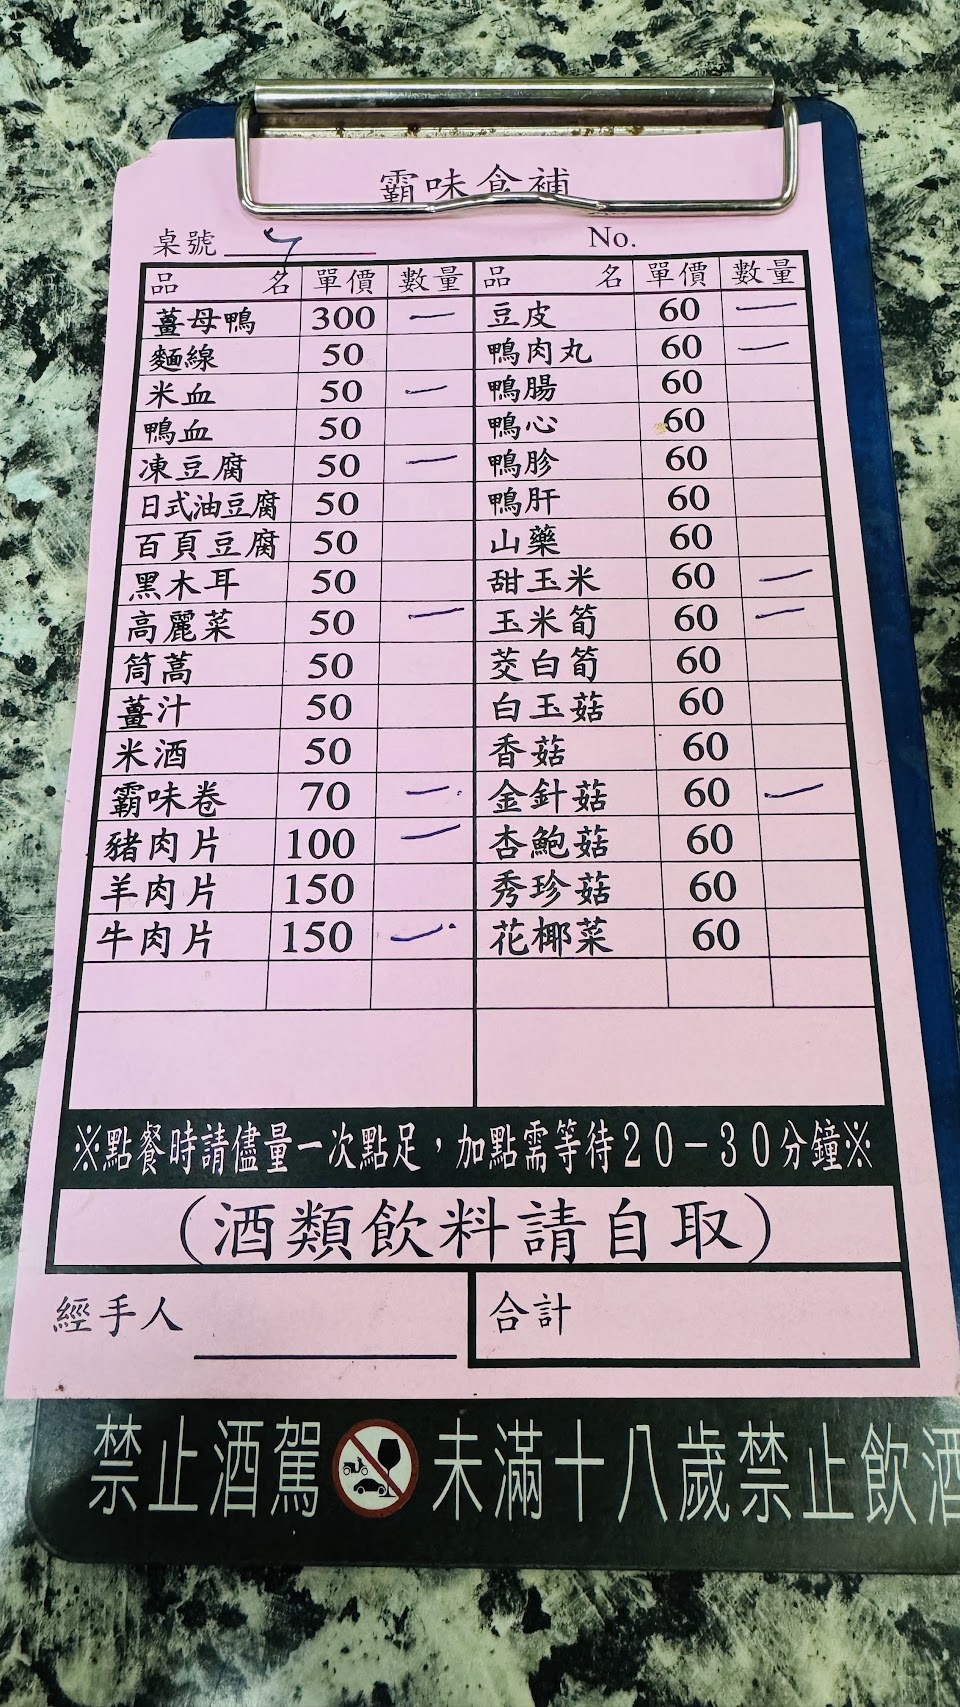 霸味食補
桌號 7 No.
品名 單價 數量 品名 單價 數量
薑母鴨 300 一 豆皮 60 一
麵線 50 鴨肉丸 60 一
米血 50 一 鴨腸 60
鴨血 50 鴨心 60
凍豆腐 50 一 鴨胗 60
日式油豆腐 50 鴨肝 60
百頁豆腐 50 山藥 60
黑木耳 50 甜玉米 60 一
高麗菜 50 一 玉米筍 60 一
筒蒿 50 茭白筍 60
薑汁 50 白玉菇 60
米酒 50 香菇 60
霸味卷 70 一 金針菇 60 一
豬肉片 100 一 杏鮑菇 60
羊肉片 150 秀珍菇 60
牛肉片 150 一 花椰菜 60
※點餐時請儘量一次點足，加點需等待20－30分鐘※
（酒類飲料請自取）
經手人 合計
禁止酒駕 未滿十八歲禁止飲酒